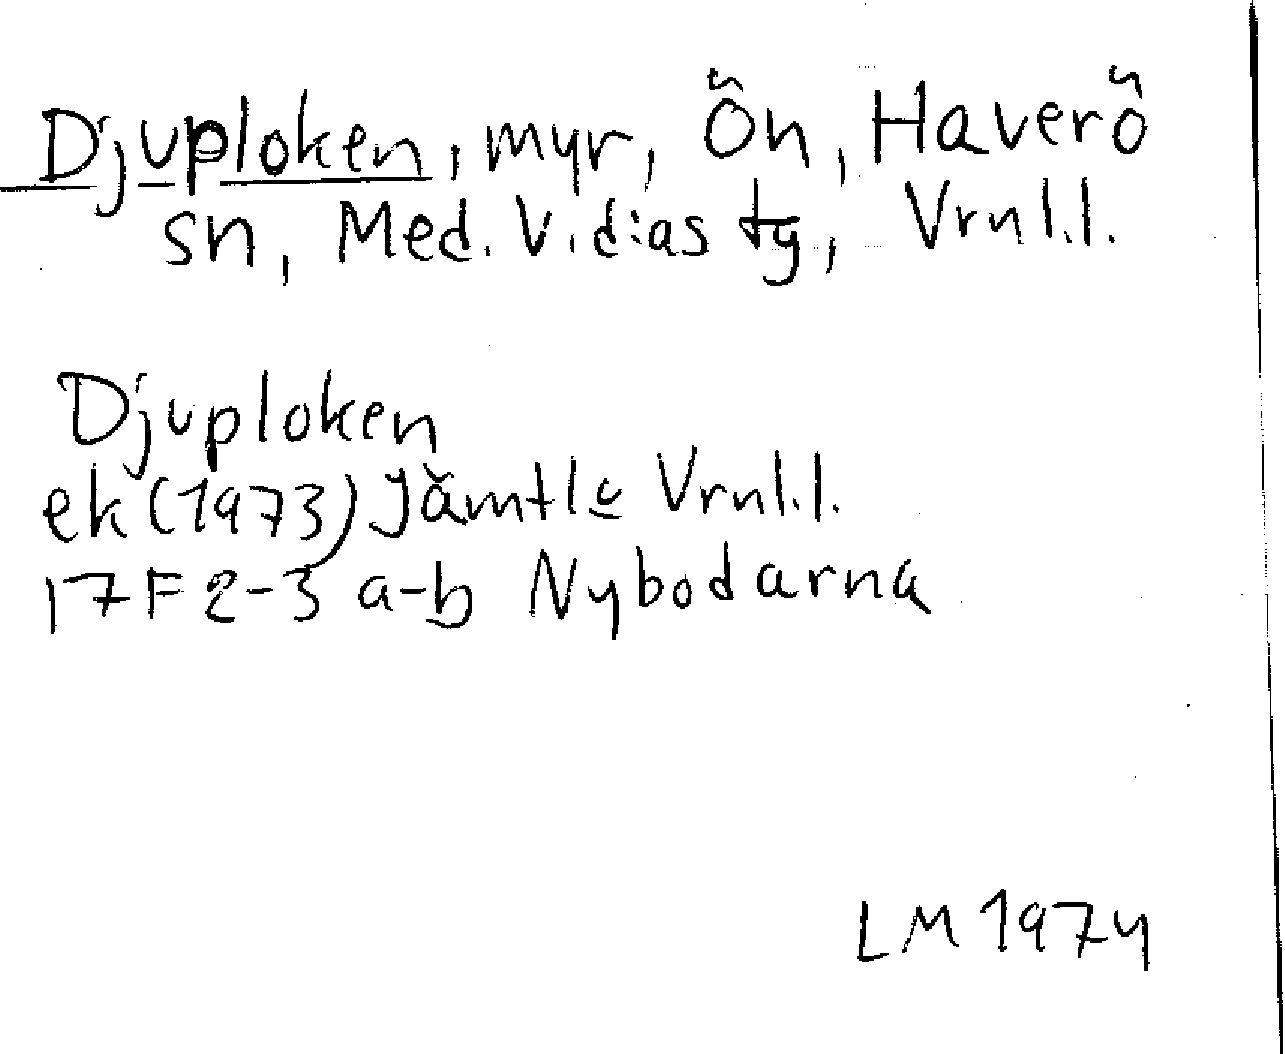 Djuploken, myr, Ön, Haverö
sn, Med. V. d:as tg, Vrnl.l.
Djuploken
ek (1973) Jämtl c Vrnl.l.
17F 2-3 a-b Nybodarna
LM 1974